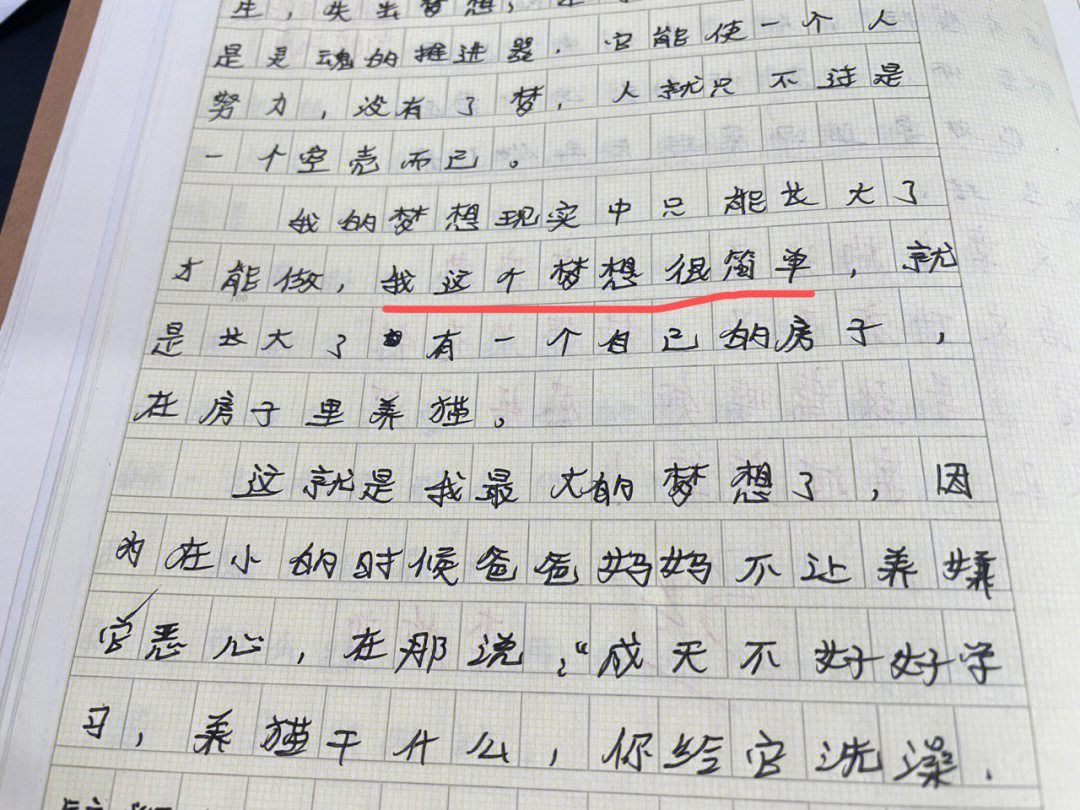 生，失去梦想，
是灵魂的推进器．它能使一个人
努力，没有了梦，人就只不过是
一个空壳而已。
我的梦想现实中只能长大了
才能做，我这个梦想很简单，就
是长大了有一个自己的房子，
在房子里养猫。
这就是我最大的梦想了，因
为在小的时候爸爸妈妈不让养嫌
它恶心，在那说，“成天不好好学
习，养猫干什么，你给它洗澡．
100